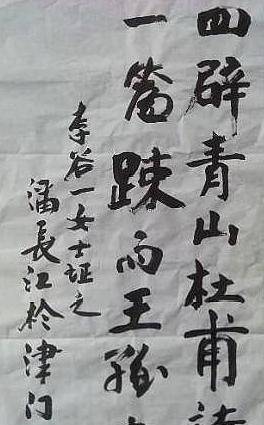 四辟青山杜甫詩
一簾踈雨王孫
李谷一女士证之
潘長江於津门